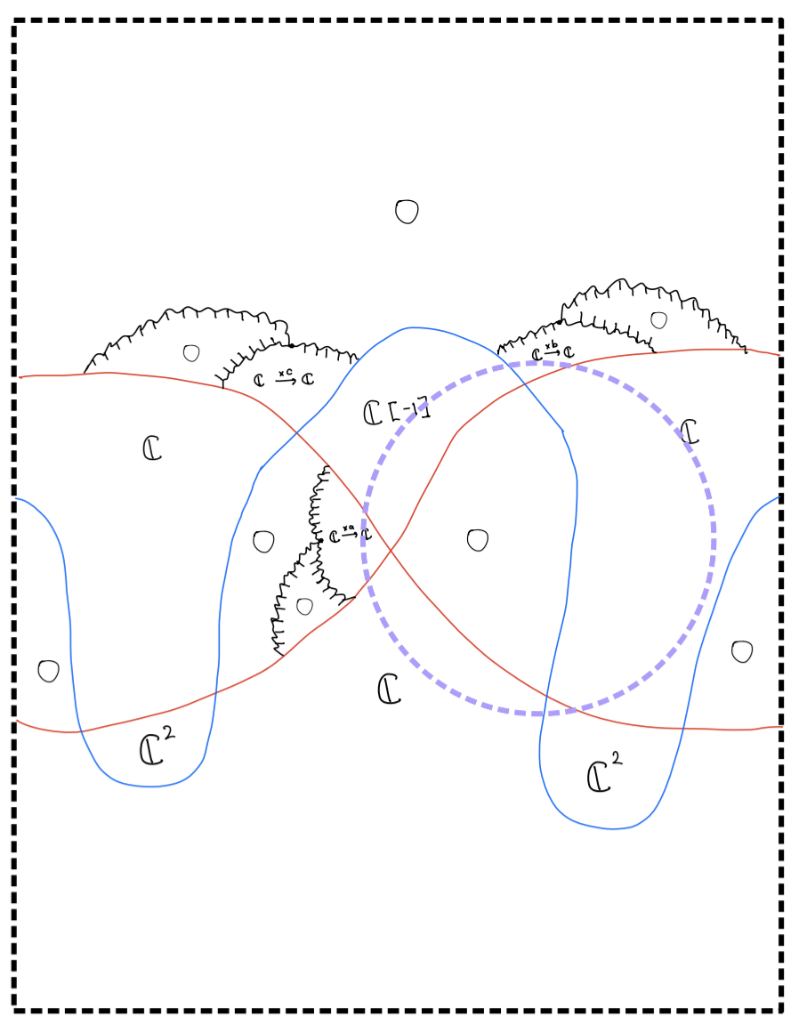 0
0
0
ℂ ×b→ ℂ
ℂ ×c→ ℂ
ℂ [-1]
ℂ
ℂ
0
ℂ ×a→ ℂ
0
0
0
0
ℂ
ℂ²
ℂ²